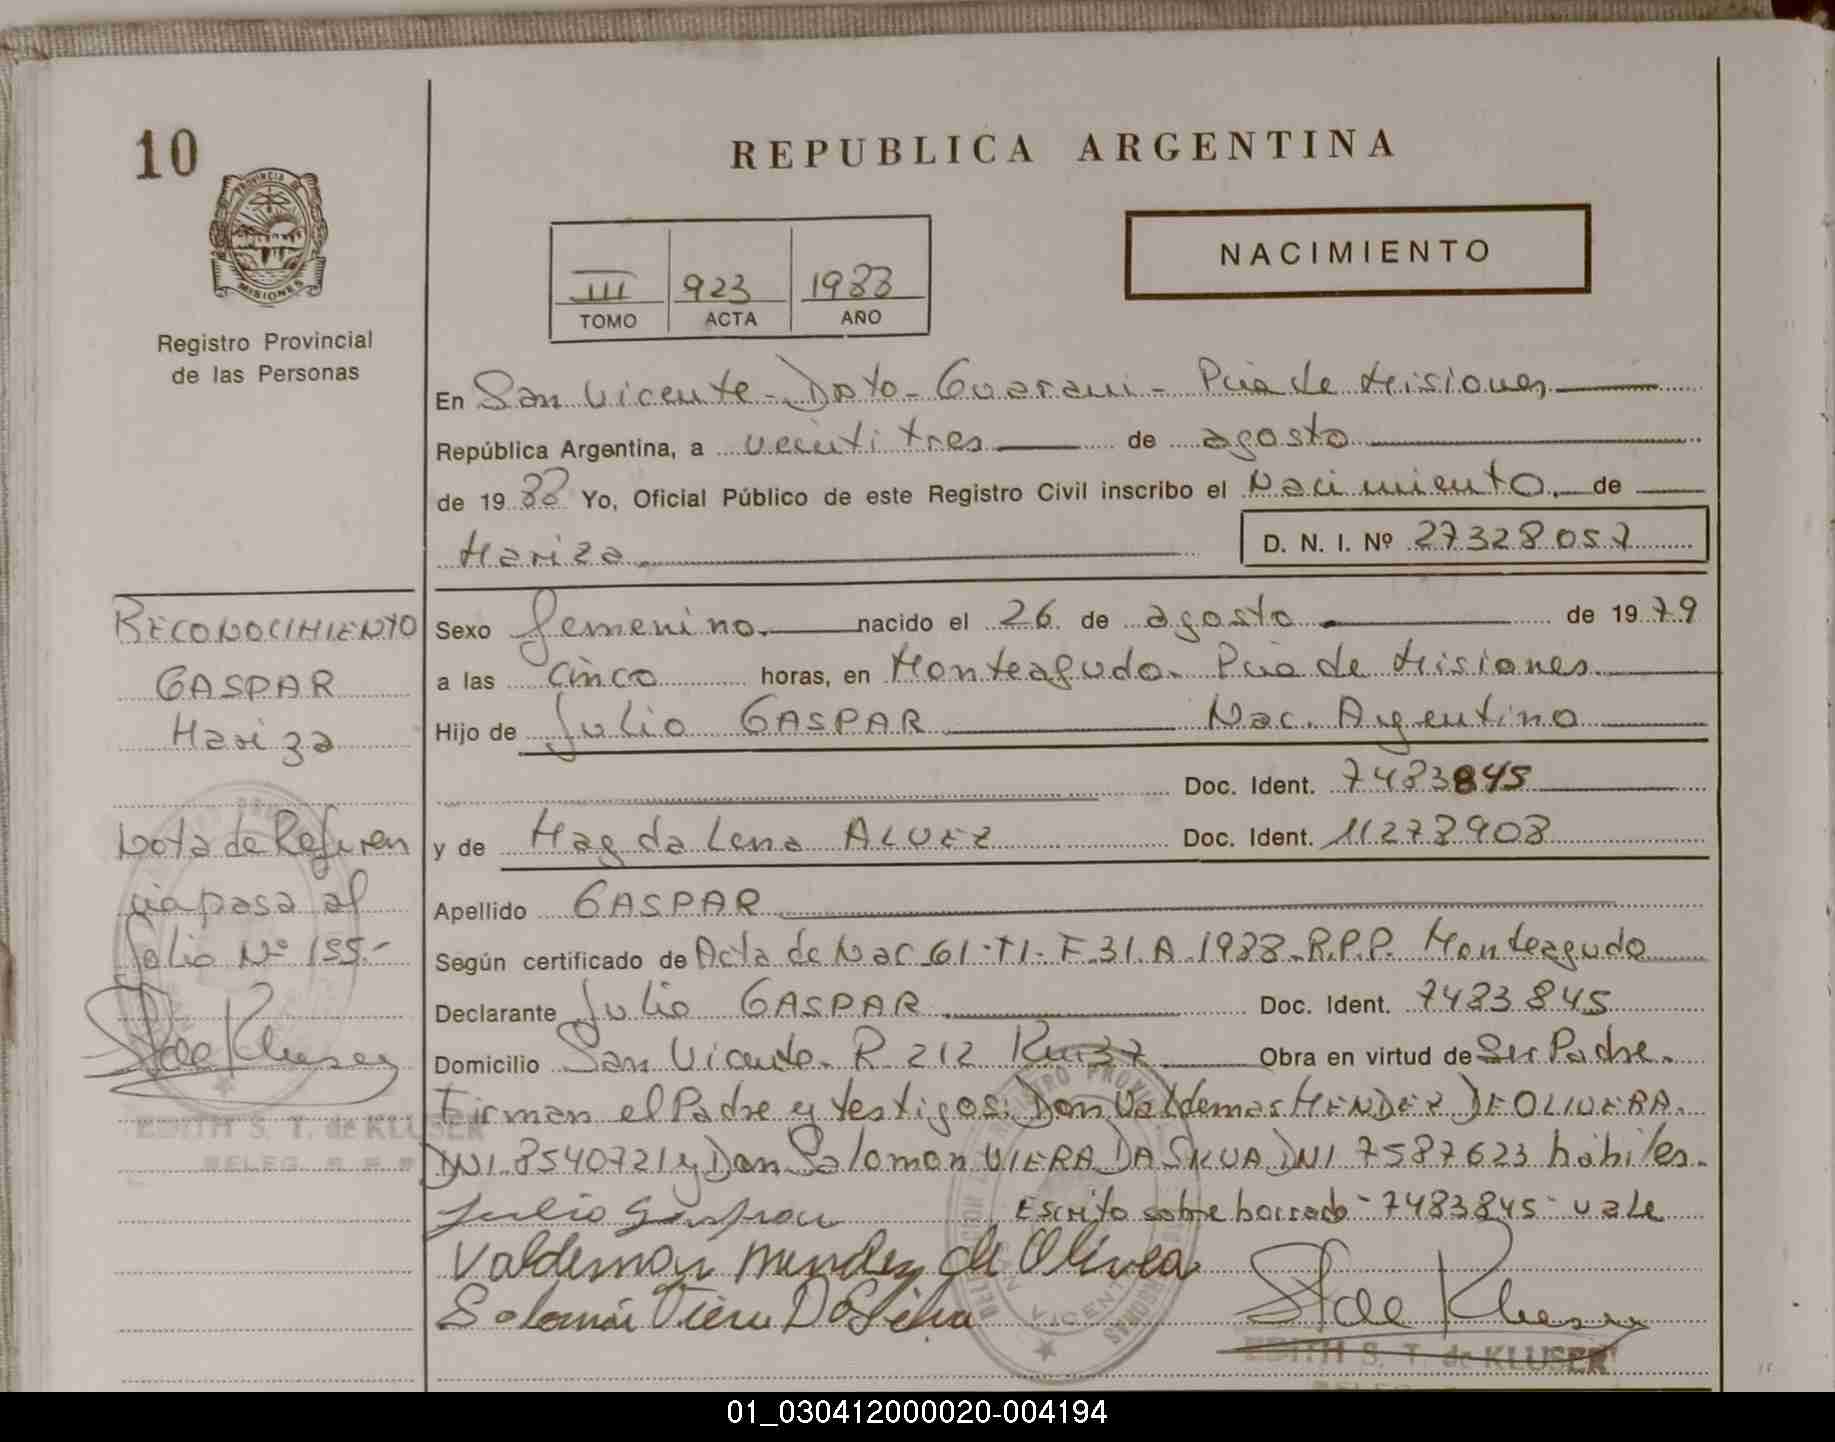 10
REPUBLICA ARGENTINA
PROVINCIA DE
MISIONES
Registro Provincial
de las Personas
III 923 1988
TOMO ACTA AÑO
NACIMIENTO
En San Vicente - Dpto - Guarani - Pcia de Misiones
República Argentina, a veintitres de agosto
de 19 88 Yo, Oficial Público de este Registro Civil inscribo el Nacimiento. de
Mariza D. N. I. Nº 27328057
Sexo femenino. nacido el 26 de agosto de 19 79
a las cinco horas, en Monteagudo. Pcia de Misiones.
Hijo de Julio GASPAR Nac. Argentino
Doc. Ident. 7483845
y de Magdalena ALVEZ Doc. Ident. 11278908
Apellido GASPAR
Según certificado de Acta de Nac 61-T1-F.31.A.1988-R.P.P. Monteagudo
Declarante Julio GASPAR Doc. Ident. 7483845
Domicilio San Vicente. R 212 Obra en virtud de Ser Padre.
Firman el Padre y testigos: Don Valdemar MENDEZ DE OLIVERA.
DNI 8540721 y Don Salomon VIERA DA SILVA DNI 7587623 hábiles.
Escrito sobre borrado - 7483845 - vale
Valdemar Mendez de Olivea
EDITH S. T. de KLUSER
RECONOCIMIENTO
GASPAR
Mariza
Nota de Referen
cia pasa al
folio Nº 155.-
EDITH S. T. de KLUSER
01_030412000020-004194